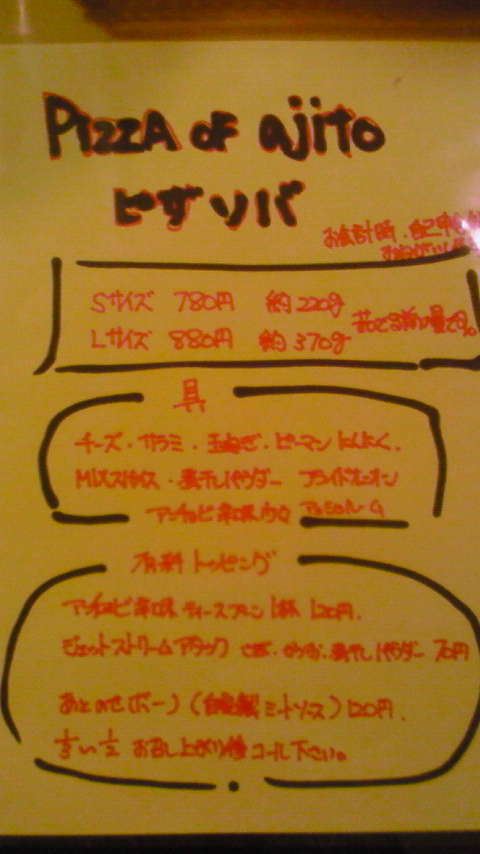 PIZZA OF ajito
ピザソバ
お会計時、
Sサイズ 780円 約220g
Lサイズ 880円 約370g 茹でる前の量です。
具
チーズ・サラミ・玉ねぎ・ピーマン にんにく、
MIXスパイス・煮干しパウダー フライドオニオン
アンチョビ辛味
有料トッピング
アンチョビ辛味 ティースプーン1杯 120円、
ジェットストリームアタック 煮干しパウダー 70円
あとのせ(ボーノ)(自家製ミートソース)120円、
お召し上がり後コール下さい。